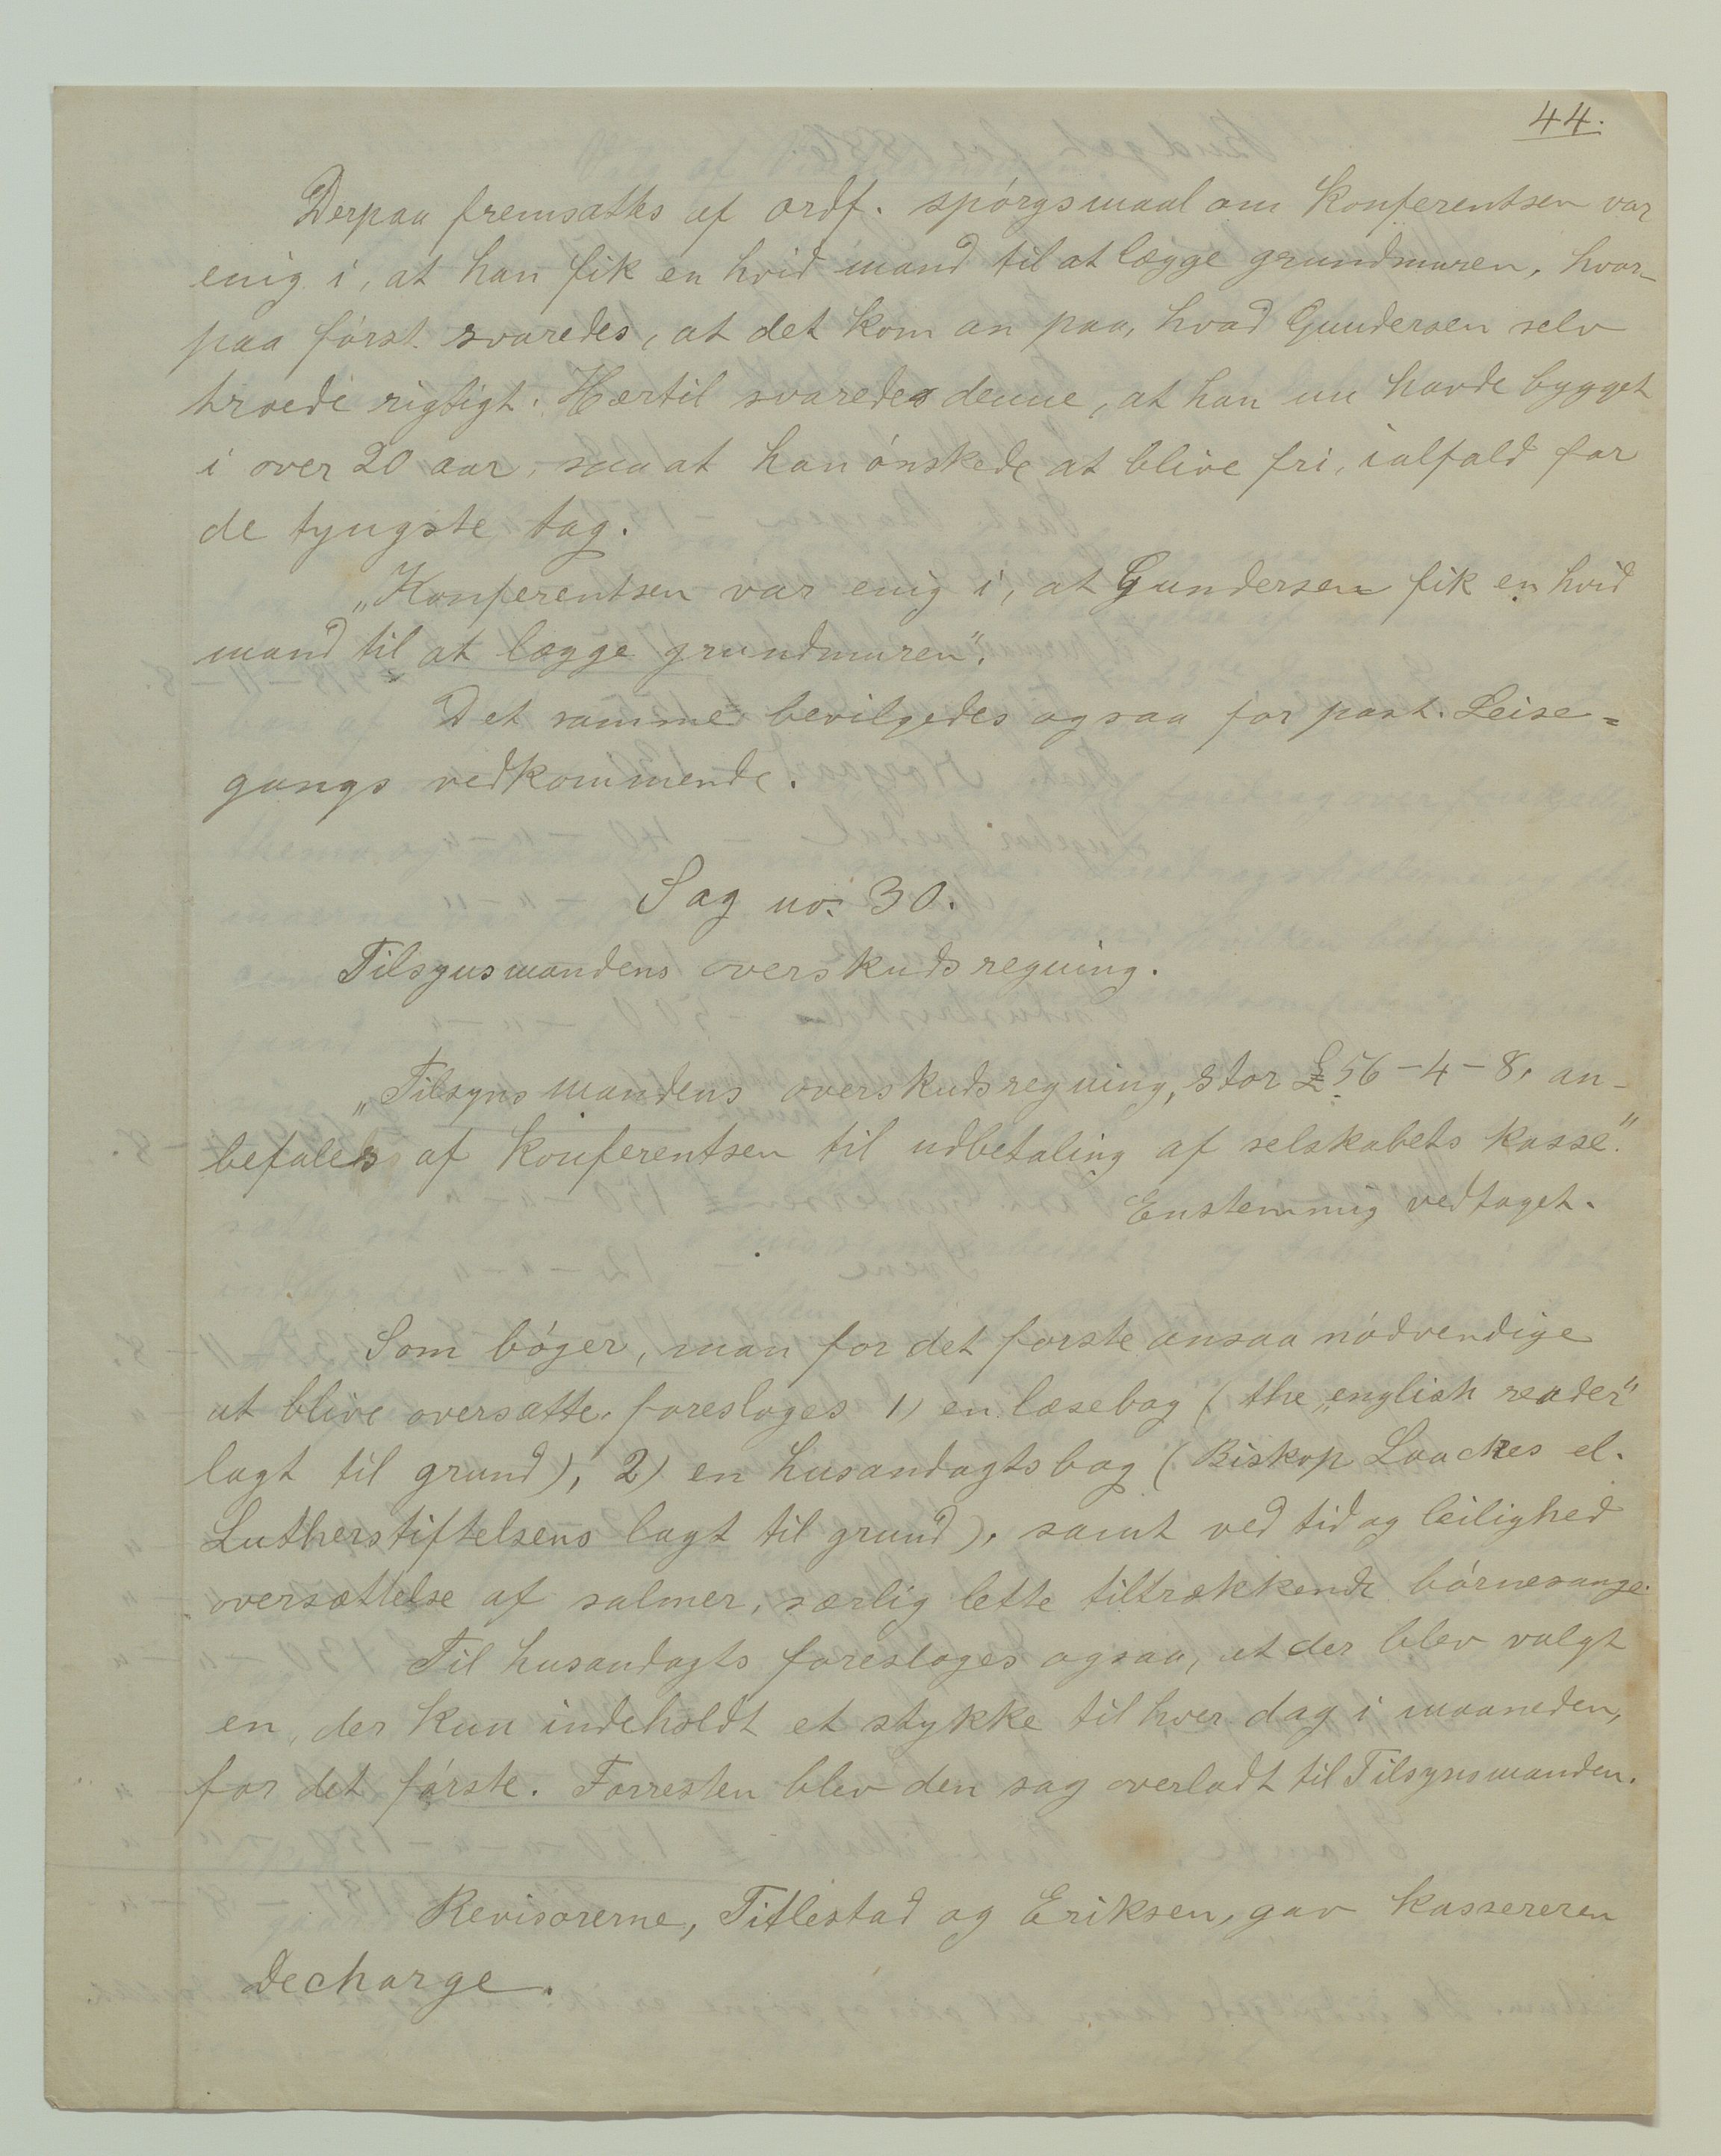 44.
Derpaa fremsattes af ordf. spórgsmaal om Konferentsen var
enig i, at han fik en hvid mand til at lægge grundmuren, hvor-
paa fórst svaredes, at det kom an paa, hvad Gundersen selv
troede rigtigt. Hertil svaredes denne, at han nu havde bygget
i over 20 aar, saa at han ónskede at blive fri, ialfald for
de tyngste tag.
„Konferentsen var enig i, at Gundersen fik en hvid
mand til at lægge grundmuren".
Det samme bevilgedes ogsaa for past. Leise=
gangs vedkommende.
Sag no. 30.
Tilsynsmandens overskudsregning.
„Tilsynsmandens overskudsregning, stor £56-4-8, an-
befales af Konferentsen til udbetaling af selskabets kasse."
Enstemmig vedtaget.
Som bóger, man for det forste ansaa nódvendige
at blive oversatte, foresloges 1) en læsebog (the „english reader"
lagt til grund), 2) en husandagtsbog (Biskop Laackes el.
Lutherstiftelsens lagt til grund), samt ved tid og leilighed
oversættelse af salmer, særlig lette tiltrækkende bórnesange.
Til husandagts foresloges ogsaa, at der blev valgt
en, der kun indeholdt et stykke til hver dag i maaneden,
for det fórste. Forresten blev den sag overladt til Tilsynsmanden.
Revisorerne, Titlestad og Eriksen, gav kassereren
decharge.